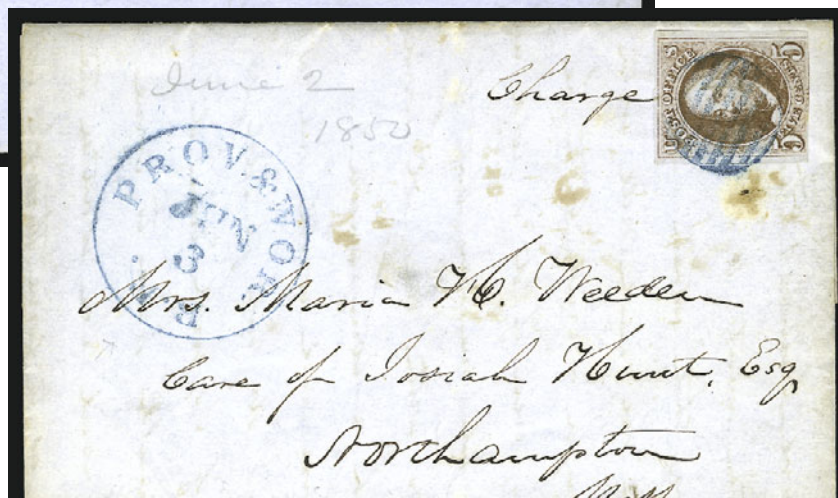 June 2
1850
Charge
POST OFFICE
PROV. & WOR.
JUN
3
R.R.
Mrs. Maria H. Weeden
Care of Josiah Hunt, Esq
Northampton